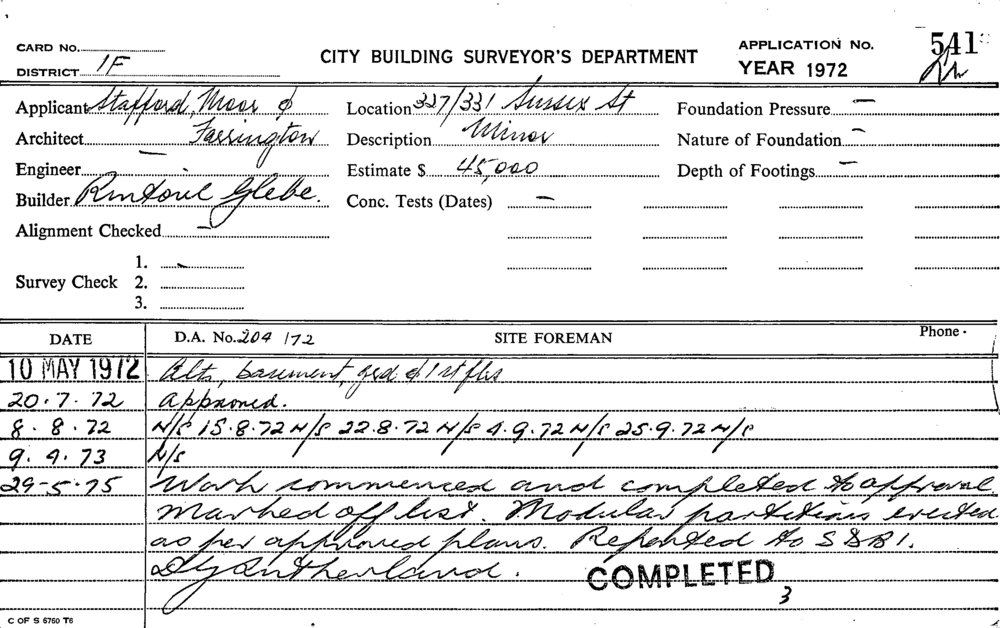 CARD No.
DISTRICT 1F
CITY BUILDING SURVEYOR'S DEPARTMENT
APPLICATION No. 541
YEAR 1972
Applicant Stafford, Moor &
Architect Farrington
Engineer —
Builder Rintoul Glebe.
Alignment Checked —
Location 327/331 Sussex St
Description Minor
Estimate $ 45,000
Conc. Tests (Dates) —
Foundation Pressure —
Nature of Foundation —
Depth of Footings —
Survey Check 1.
2.
3.
DATE D.A. No. 204/72 SITE FOREMAN Phone
10 MAY 1972 Alts, basement, grd & 1st flrs
20.7.72 Approved.
8.8.72 N/S 15.8.72 N/S 22.8.72 N/S 4.9.72 N/S 25.9.72 N/S
9.4.73 N/S
29-5.75 Work commenced and completed to approval.
Marked off list. Modular partitions erected
as per approved plans. Reported to S&B1.
Sutherland.
COMPLETED
3
C OF S 6760 T6